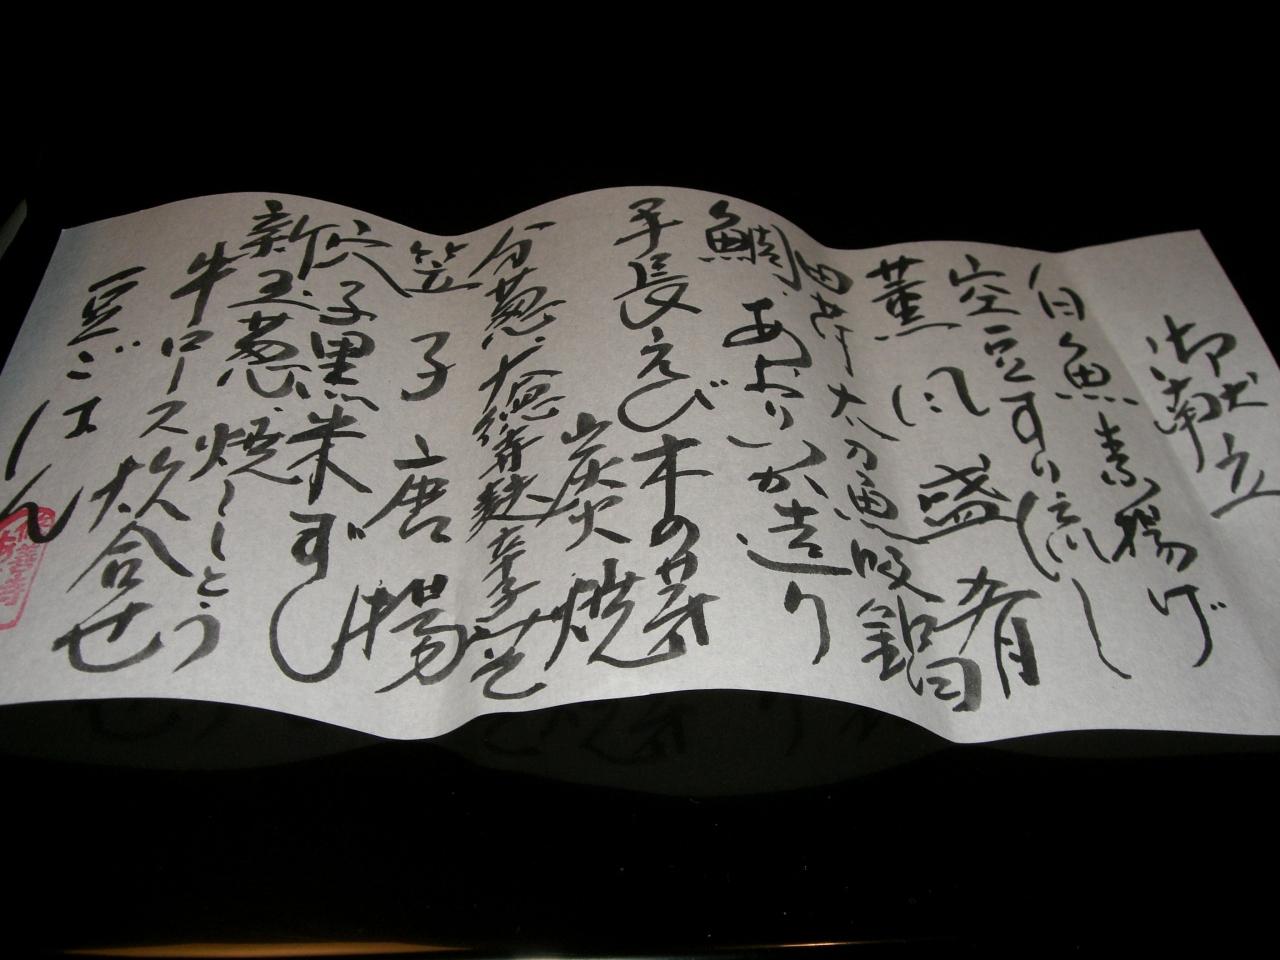 御献立
白魚素揚げ
空豆すり流し
薫風盛肴
太刀魚吸鍋
鯛、あおりいか造り
手長えび木の芽
炭火焼
分葱、大徳寺麩辛子みそ
笠子唐揚
穴子黒米ずし
新玉葱、焼ししとう
牛ロース炊合せ
豆ごはん